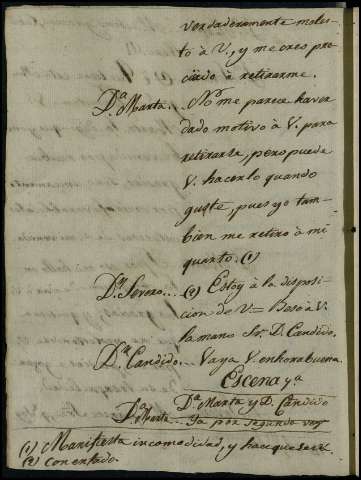 verdaderamente moles-
to à V., y me creo pre-
cisado à retirarme.
D.ª Marta... No me parece haver
dado motivo à V. para
retirarse, pero puede
V. hacerlo quando
guste, pues yo tam-
bien me retiro à mi
quarto. (1)
D.n Severo... (2) Estoy à la disposi-
cion de V= Beso à V.
la mano Sr. D. Candido.
D.n Candido... Vaya V enhorabuena.
Escena 7ª
D.ª Marta y D. Candido
D.ª Marta... Ya por segunda vez
(1) Manifiesta incomodidad, y hace que se vá.
(2) Con enfado.